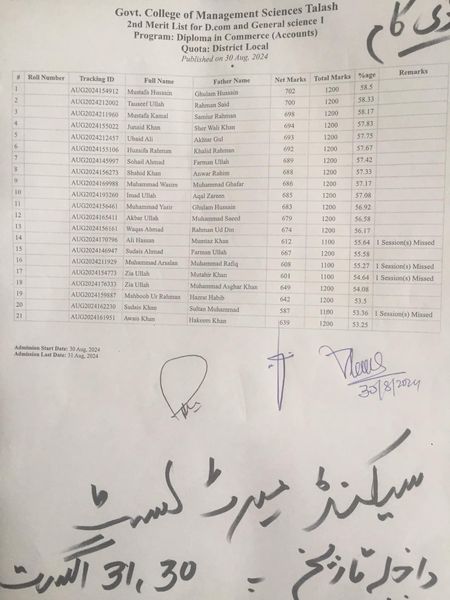 ڈی کام
Govt. College of Management Sciences Talash
2nd Merit List for D.com and General science I
Program: Diploma in Commerce (Accounts)
Quota: District Local
Published on 30 Aug, 2024
# Roll Number Tracking ID Full Name Father Name Net Marks Total Marks %age Remarks
1 AUG2024154912 Mustafa Hussain Ghulam Hussain 702 1200 58.5
2 AUG2024212002 Tauseef Ullah Rahman Said 700 1200 58.33
3 AUG2024211960 Mustafa Kamal Samiur Rahman 698 1200 58.17
4 AUG2024155022 Junaid Khan Sher Wali Khan 694 1200 57.83
5 AUG2024212457 Ubaid Ali Akhtar Gul 693 1200 57.75
6 AUG2024155106 Huzaifa Rahman Khalid Rahman 692 1200 57.67
7 AUG2024145997 Sohail Ahmad Farman Ullah 689 1200 57.42
8 AUG2024156273 Shahid Khan Anwar Rahim 688 1200 57.33
9 AUG2024169988 Muhammad Wasim Muhammad Ghafar 686 1200 57.17
10 AUG2024193260 Imad Ullah Aqal Zareen 685 1200 57.08
11 AUG2024156461 Muhammad Yasir Ghulam Hussain 683 1200 56.92
12 AUG2024165411 Akbar Ullah Muhammad Saeed 679 1200 56.58
13 AUG2024156161 Waqas Ahmad Rahman Ud Din 674 1200 56.17
14 AUG2024170796 Ali Hassan Mumtaz Khan 612 1100 55.64 1 Session(s) Missed
15 AUG2024146947 Sudais Ahmad Farman Ullah 667 1200 55.58
16 AUG2024211929 Muhammad Arsalan Muhammad Rafiq 608 1100 55.27 1 Session(s) Missed
17 AUG2024154773 Zia Ullah Mutahir Khan 601 1100 54.64 1 Session(s) Missed
18 AUG2024176333 Zia Ullah Muhammad Asghar Khan 649 1200 54.08
19 AUG2024159887 Mahboob Ur Rahman Hazrat Habib 642 1200 53.5
20 AUG2024162230 Sudais Khan Sultan Muhammad 587 1100 53.36 1 Session(s) Missed
21 AUG2024161951 Awais Khan Hakeem Khan 639 1200 53.25
Admission Start Date: 30 Aug, 2024
Admission Last Date: 31 Aug, 2024
30/8/2024
سیکنڈ میرٹ لسٹ
داخلہ تاریخ = 30, 31 اگست